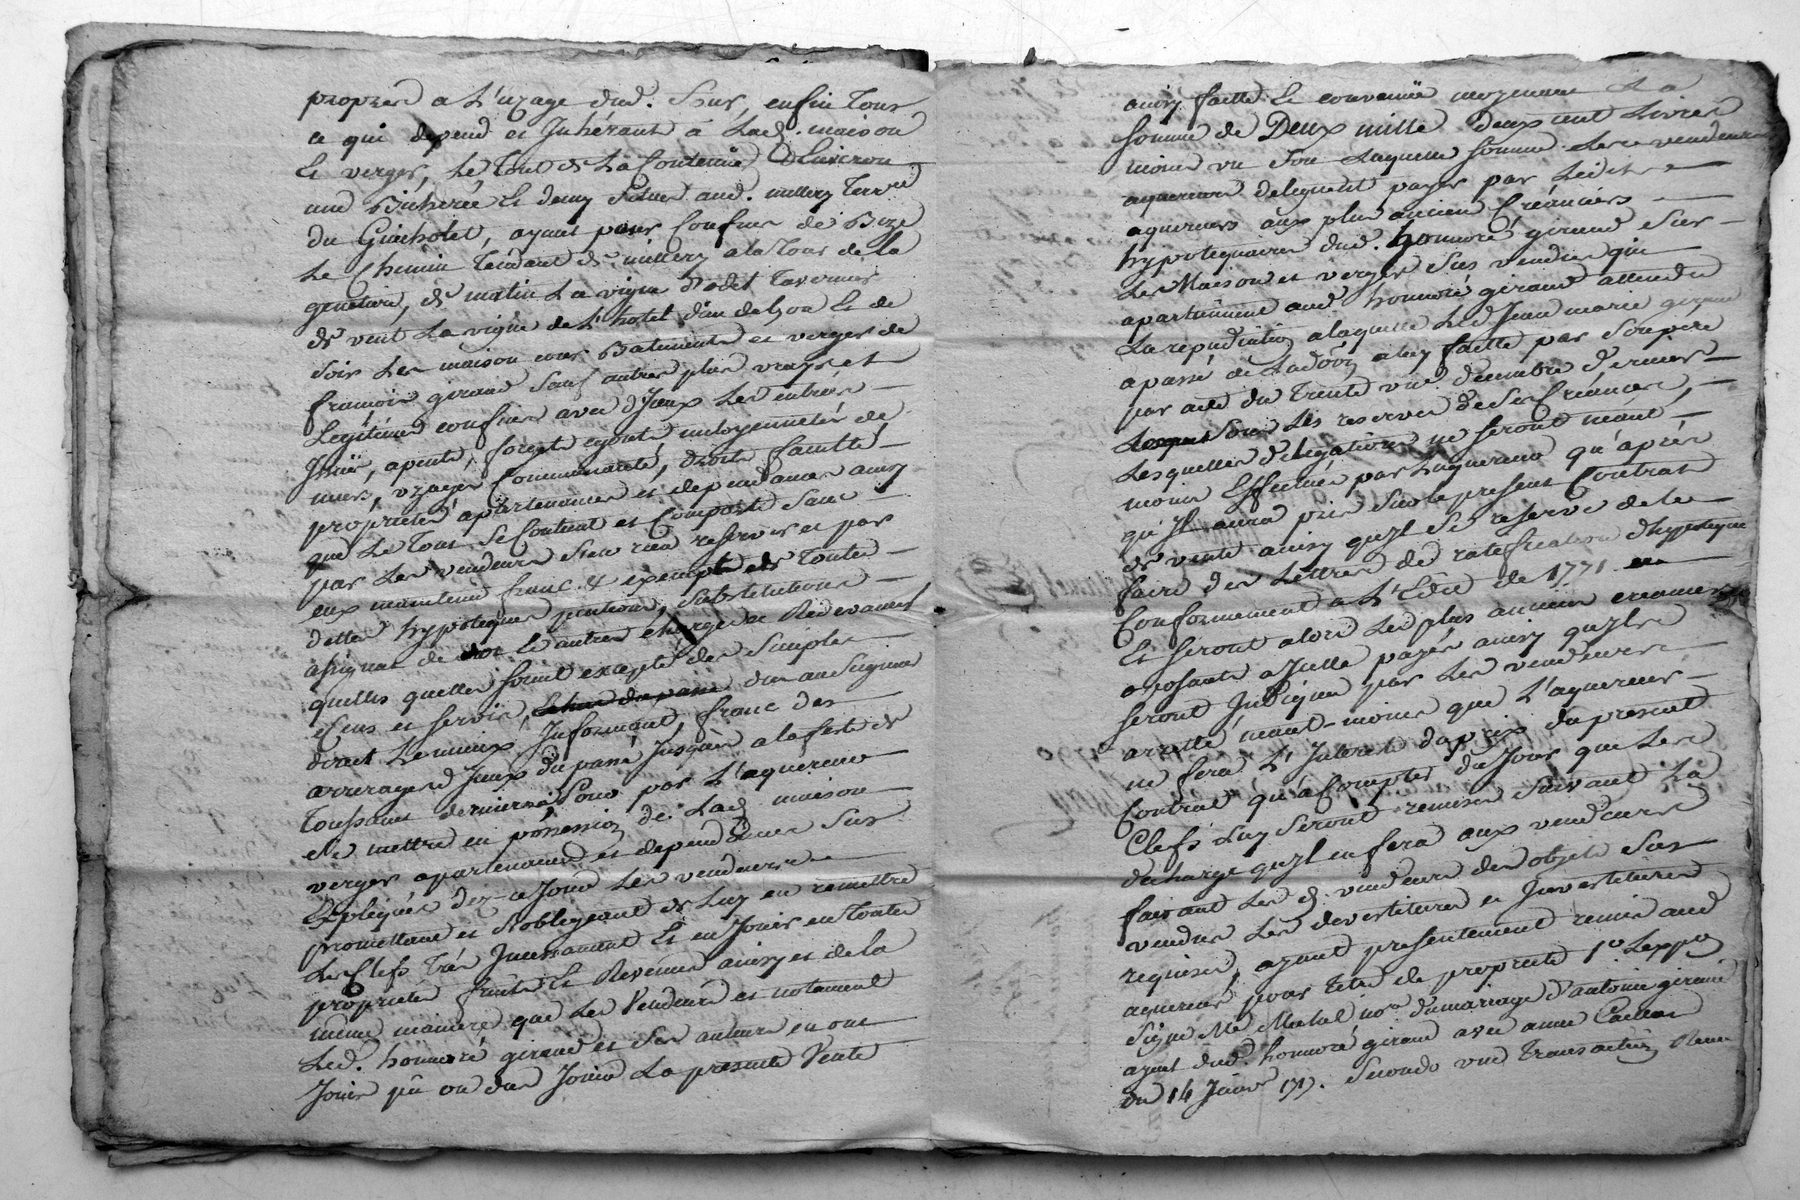 propres a L'uzage dud. Sieur, enfin Tous
ce qui depend et Inhérant à Lad. maison
Et verger, Le Tout de La Contenue d'Environ
une Bicherée Et demy situés aud. millery Terroir
du Guicholet, ayant pour Confins de Bize
Le Chemin Tendant de millery a la Tour de la
, de matin La vigne d' Tavernier
de vent La vigne de L'hotel dieu de Lyon Et de
soir Les maison cour Batiments et verger de
francois giraud sauf autres plus vrays et
Legitimes confins avec d'Iceux Les entrées
Issuë, apente, forget egouts mitoyennetés de
murs, uzages Communauté, droits faculté
proprietés apartenances et dependances ainsy
que Le Tout Se Contient et Comporte Sans
par Les vendeurs S'en rien reserver et par
eux maintenu franc & exempte de Toutes
dettes hypoteques pentions, substitutions
assignat de Et autres charges et Redevances
quelles quelles soient excepté des Simples
Cens et servis, dus au Seigneur
direct Le mieux Informant, franc des
arrerages d'Iceux du passé Jusques a la feste de
Toussaint derniere, Pour par L'aquereur
se mettre en possession de Lad. maison
verger apartenances et dependances Sus
Expliqués dez ce Jour Les vendeurs
promettant et s'obligeant de Luy en remettre
Les Clefs Très Incessament Et en Jouir en Toutes
proprietés fruits Et Revenus ainsy et de la
même maniere que Les Vendeurs et notament
Led. honnoré giraud et Ses auteurs en ont
Jouir pû ou du Jouir La presente Vente
ainsy faitte Et convenuë moyenant La
somme de Deux mille deux cent Livres
moins un Sou Laquelle Somme Les vendeurs
aquereur deleguent payer par Ledit
aquereurs aux plus ancien Créanciers
hypotequaires dud. honnoré giraud Sur
Les Maison et verger Sus vendus qui
apartiennent aud. honnoré giraud attendu
La repudiation a laquelle Led. Jean marie giraud
a passé de La a luy faitte par Son père
par acte du Trente un decembre dernier
Sous Les reserves de Ses Créances,
Lesquelles delegations ne seront neant
moins Effectuées par Laquereur qu'après
qu'Il aura pris Sur le present Contrat
de vente ainsy qu'Il Se reserve de le
faire des Lettres de ratiffication d'hypoteque
Conformement a L'Edit de 1771
Et seront alors Les plus anciens creanciers
oposants a Icelle payés ainsy qu'Ils
seront Indiqués par Les vendeurs
arretté neant-moins que L'aquereur
ne fera L'Interest du prix du present
Contrat qu'à Compter du Jour que Les
Clefs Luy seront remises Suivant La
decharge qu'Il en fera aux vendeurs
faisant Les d. vendeurs des objets Sus
vendus Les devestitures et Investitures
requises, ayant presentement remis aud.
aquereur pour titre de propriété 1º L'exp.on
signé Me Michel nore du mariage d'antoine giraud
ayeul dud. honnoré giraud avec anne
du 14 Janver . Secondo une Transaction Reçue